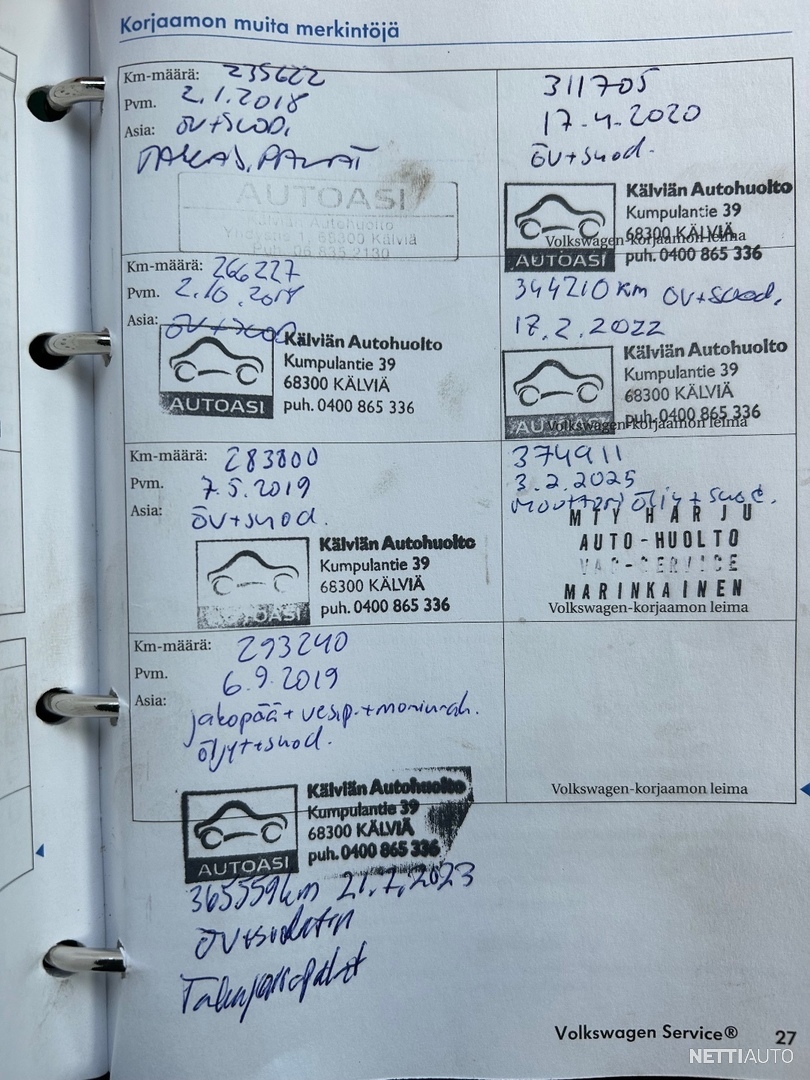 Korjaamon muita merkintöjä
Km-määrä: 235622
Pvm. 2.1.2018
Asia: ÖV+SUOD,
TAKAJ.PALAT
AUTOASI
Kälviän Autohuolto
68300 Kälviä
Puh. 06 835 2130
Km-määrä: 266227
Pvm. 2.10.2018
Asia: ÖV+suod
AUTOASI
Kälviän Autohuolto
Kumpulantie 39
68300 KÄLVIÄ
puh. 0400 865 336
Km-määrä: 283800
Pvm. 7.5.2019
Asia: ÖV+suod.
AUTOASI
Kälviän Autohuolto
Kumpulantie 39
68300 KÄLVIÄ
puh. 0400 865 336
Km-määrä: 293240
Pvm. 6.9.2019
Asia: jakopää+vesip.+moniurah.
öljyt+suod.
AUTOASI
Kälviän Autohuolto
Kumpulantie 39
68300 KÄLVIÄ
puh. 0400 865 336
365559km 21.7.2023
ÖV+suodatin
Takajarrupalat
311705
17.4.2020
ÖV+suod.
AUTOASI
Kälviän Autohuolto
Kumpulantie 39
68300 KÄLVIÄ
Volkswagen-korjaamon leima
puh. 0400 865 336
344210 km ÖV+suod.
17.2.2022
AUTOASI
Kälviän Autohuolto
Kumpulantie 39
68300 KÄLVIÄ
puh. 0400 865 336
Volkswagen-korjaamon leima
374911
3.2.2025
moottori öljy+suod.
MTY HARJU
AUTO-HUOLTO
VAG-SERVICE
MARINKAINEN
Volkswagen-korjaamon leima
Volkswagen-korjaamon leima
Volkswagen Service® 27
NETTIAUTO